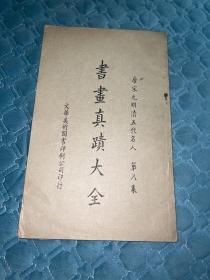 唐宋元明清五代名人　第八集
書畫真蹟大全
文華美術圖書印刷公司印行